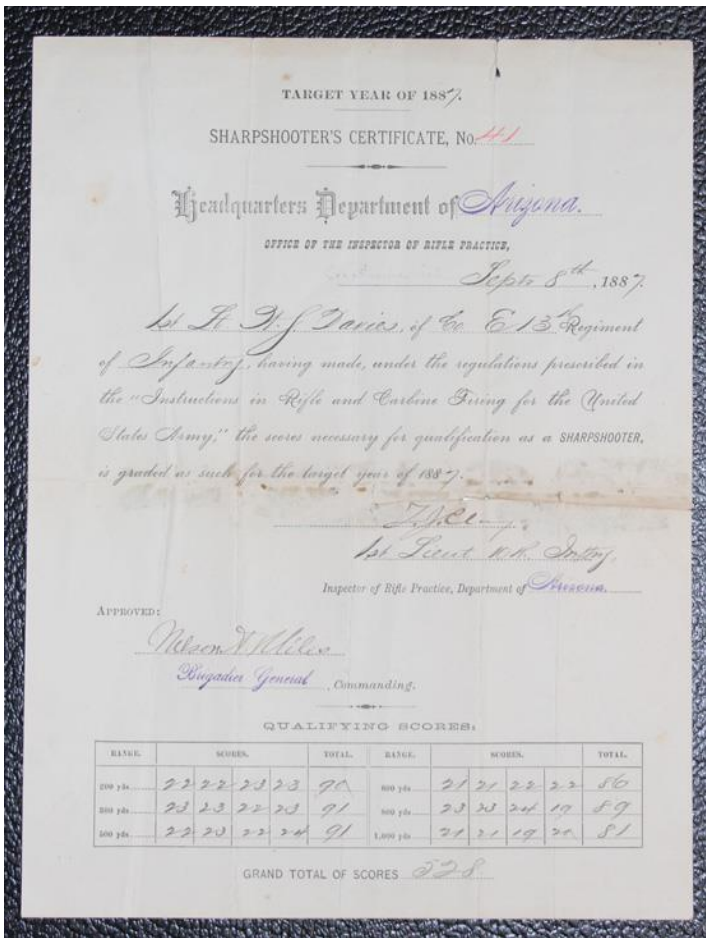 TARGET YEAR OF 1887.
SHARPSHOOTER'S CERTIFICATE, No. 41
Headquarters Department of Arizona.
OFFICE OF THE INSPECTOR OF RIFLE PRACTICE,
Septr 8th, 1887.
1st Lt W. J. Davies, of Co E 13th Regiment
of Infantry, having made, under the regulations prescribed in
the "Instructions in Rifle and Carbine Firing for the United
States Army," the scores necessary for qualification as a SHARPSHOOTER,
is graded as such for the target year of 1887.
1st Lieut
Inspector of Rifle Practice, Department of Arizona.
APPROVED:
Nelson A. Miles
Brigadier General, Commanding.
QUALIFYING SCORES:
RANGE. SCORES. TOTAL. RANGE. SCORES. TOTAL.
200 yds. 22 22 23 23 90 600 yds. 21 21 22 22 86
300 yds. 23 23 22 23 91 23 23 24 19 89
500 yds. 22 23 22 24 91 1,000 yds. 21 21 19 20 81
GRAND TOTAL OF SCORES 528